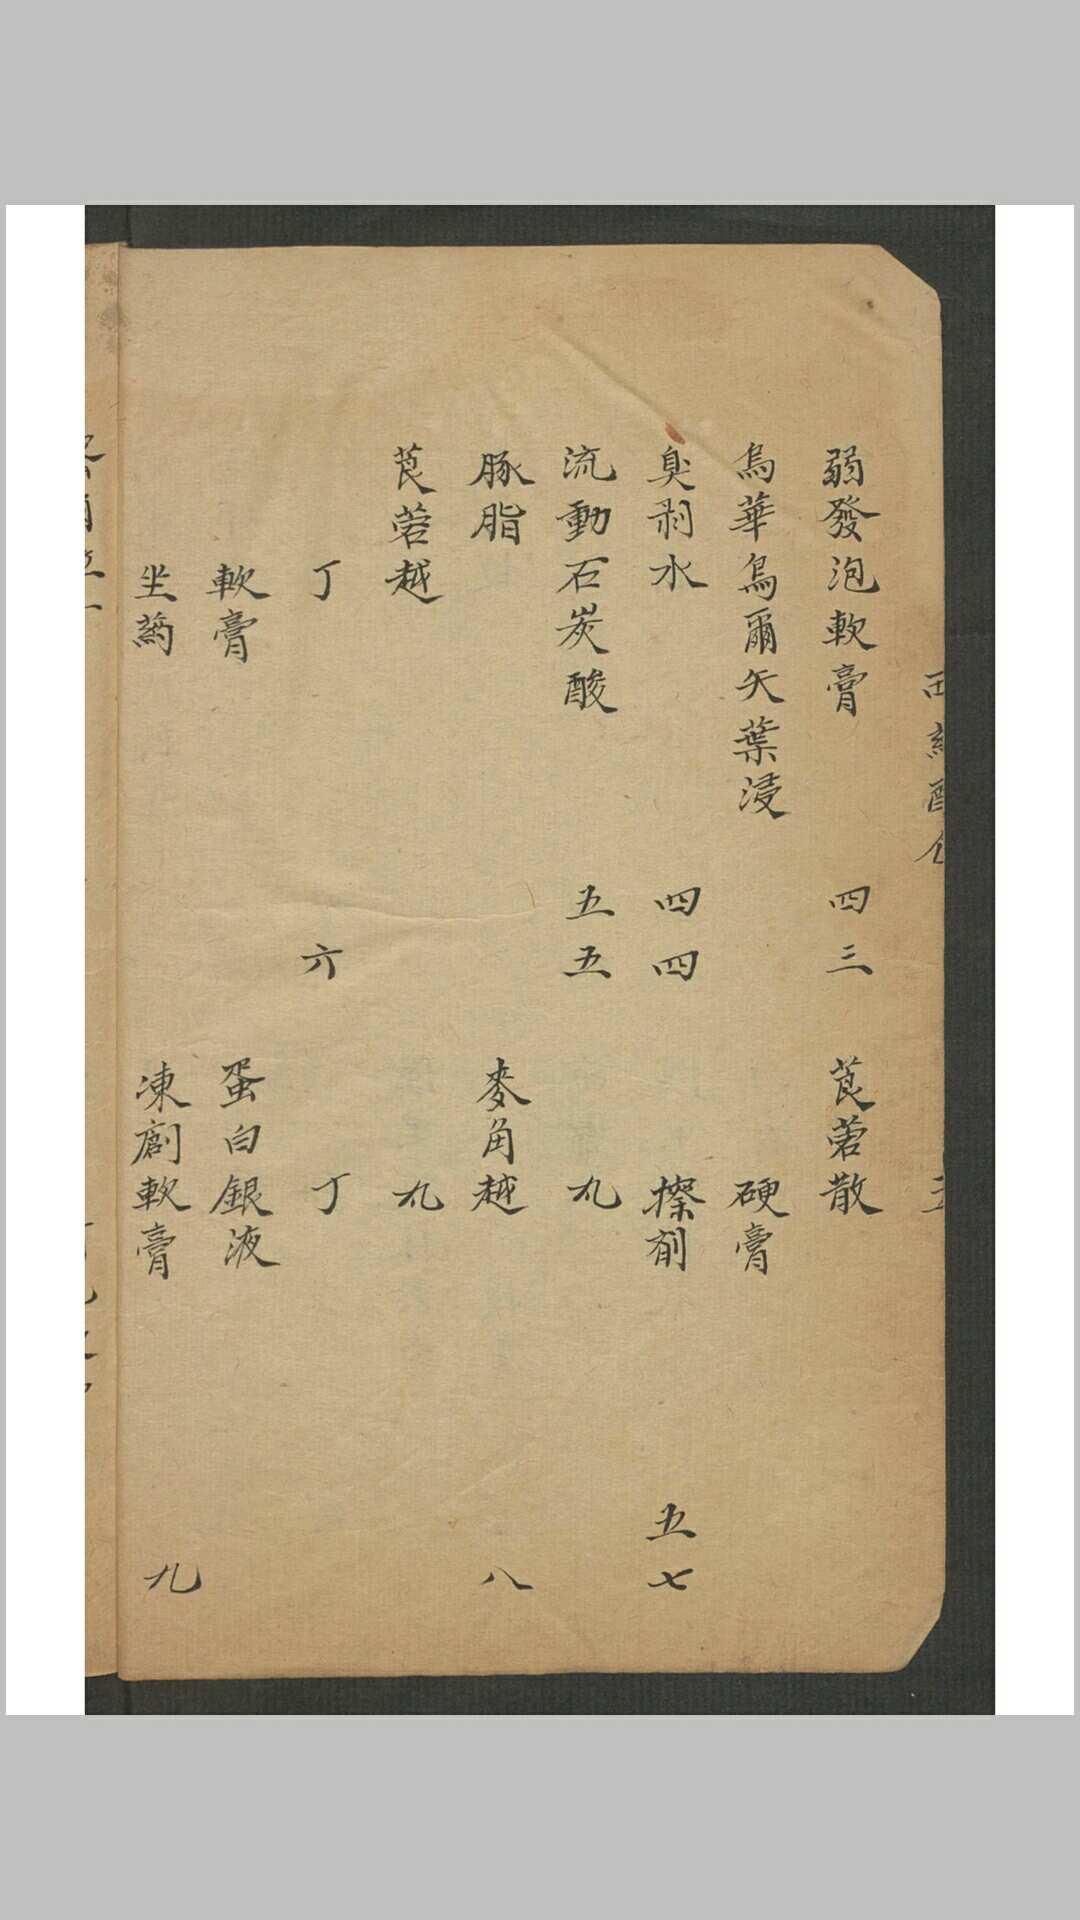 弱發泡軟膏 四三 莨菪散
烏華烏爾矢葉浸 硬膏
臭剥水 四四 擦剤 五七
流動石炭酸 五五 丸
豚脂 麥角越 八
莨菪越 丸
丁 六 丁
軟膏 蛋白銀液
坐薬 凍創軟膏 九